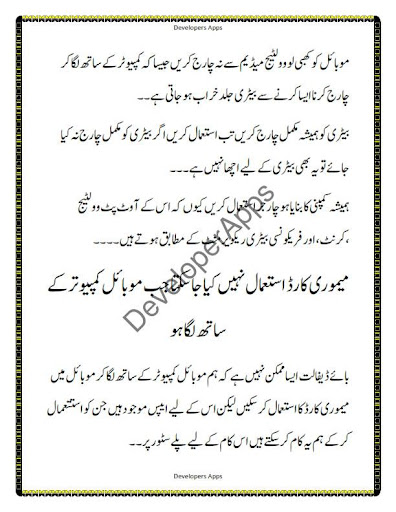 Developers Apps
موبائل کو کبھی لو وولٹیج میڈیم سے نہ چارج کریں جیسا کہ کمپیوٹر کے ساتھ لگا کر
چارج کرنا ایسا کرنے سے بیٹری جلد خراب ہو جاتی ہے۔۔
بیٹری کو ہمیشہ مکمل چارج کریں تب استعمال کریں اگر بیٹری کو مکمل چارج نہ کیا
جائے تو یہ بھی بیٹری کے لیے اچھا نہیں ہے۔۔۔
ہمیشہ کمپنی کا بنایا ہو چارجر استعمال کریں کیوں کہ اس کے آوٹ پٹ وولٹیج
،کرنٹ، اور فریکونسی بیٹری ریکویرمنٹ کے مطابق ہوتے ہیں۔۔۔۔
میموری کارڈ استعمال نہیں کیا جا سکتا جب موبائل کمپیوٹر کے
ساتھ لگا ہو
بائے ڈیفالٹ ایسا ممکن نہیں ہے کہ ہم موبائل کمپیوٹر کے ساتھ لگا کر موبائل میں
میموری کارڈ کا استعمال کر سکیں لیکن اس کے لیے ایپس موجود ہیں جن کو استتعمال
کر کے ہم یہ کام کر سکتے ہیں اس کام کے لیے پلے سٹور پر۔۔
DeveloperApps
Developers Apps